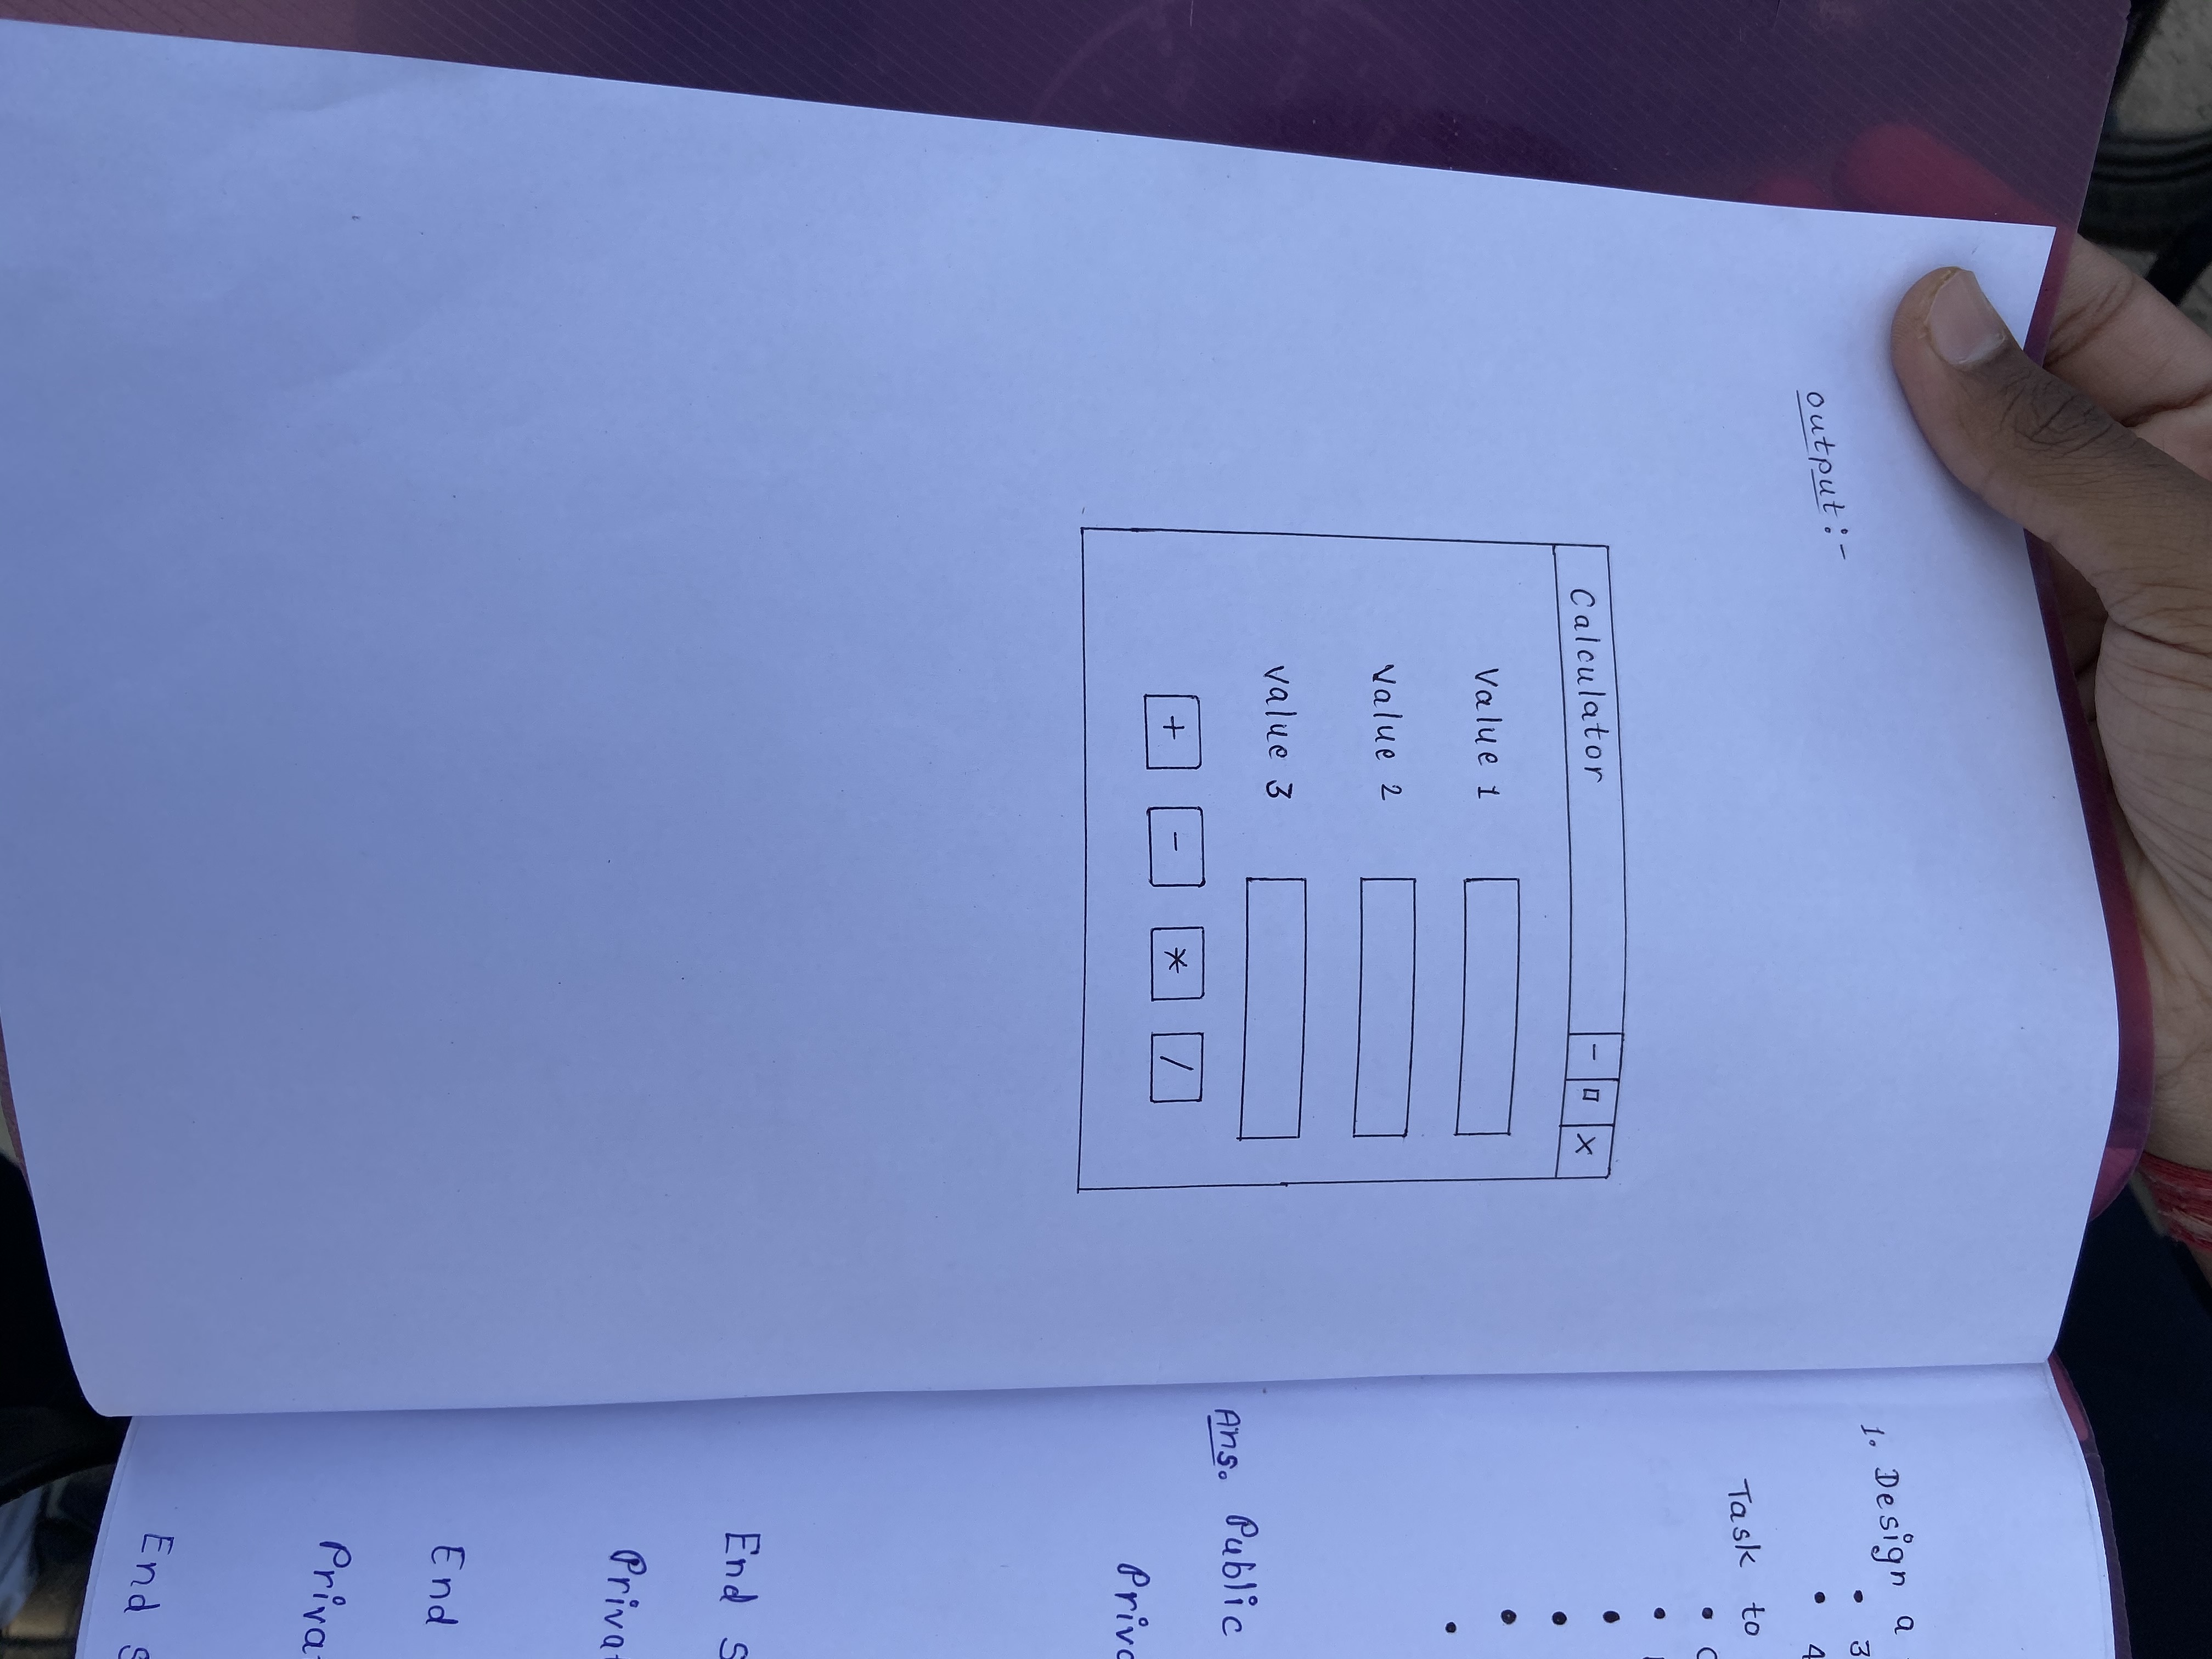 Output :-
Calculator - □ X
Value 1
Value 2
Value 3
+ - * /
1. Design a
• 3
• 4
Task to
•
•
•
•
•
•
Ans. Public
Priva
End S
Privat
End
Privat
End S